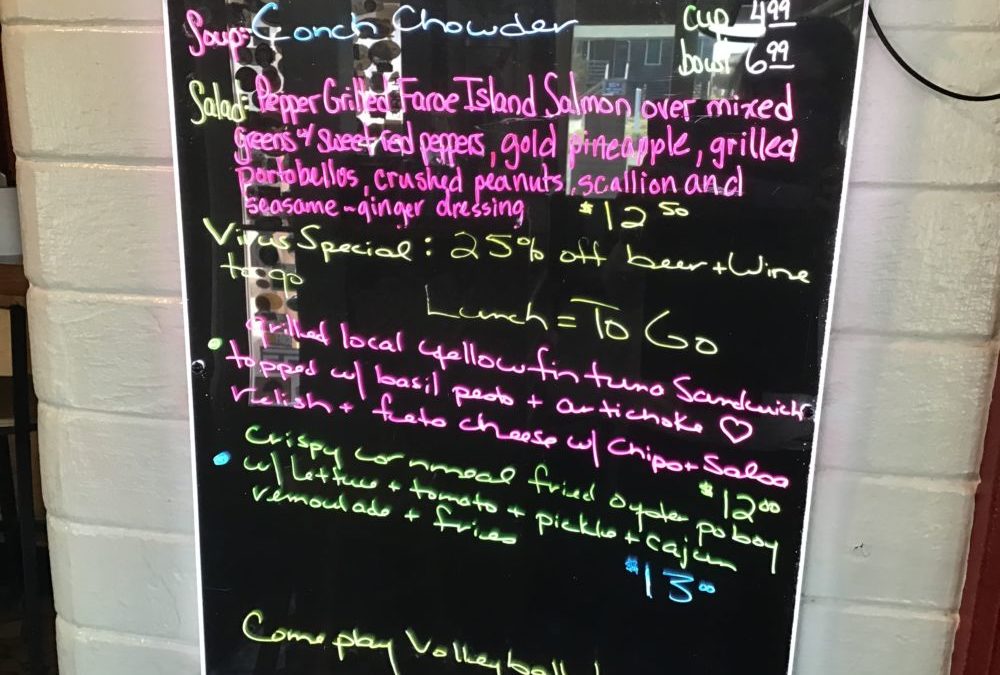 Soup: Conch Chowder cup 4.99
bowl 6.99
Salad: Pepper Grilled Faroe Island Salmon over mixed
greens w/ sweet red peppers, gold pineapple, grilled
portobellos, crushed peanuts, scallion and
seasame-ginger dressing $12.50
Virus Special: 25% off beer + Wine
to go
Lunch = To Go
• Grilled local yellowfin tuna Sandwich
topped w/ basil pesto + artichoke ♡
relish + feta cheese w/ Chips + Salsa
$12.00
• Crispy cornmeal fried oyster po boy
w/ lettuce + tomato + pickle + cajun
remoulade + fries
$13.00
Come play Volleyball!